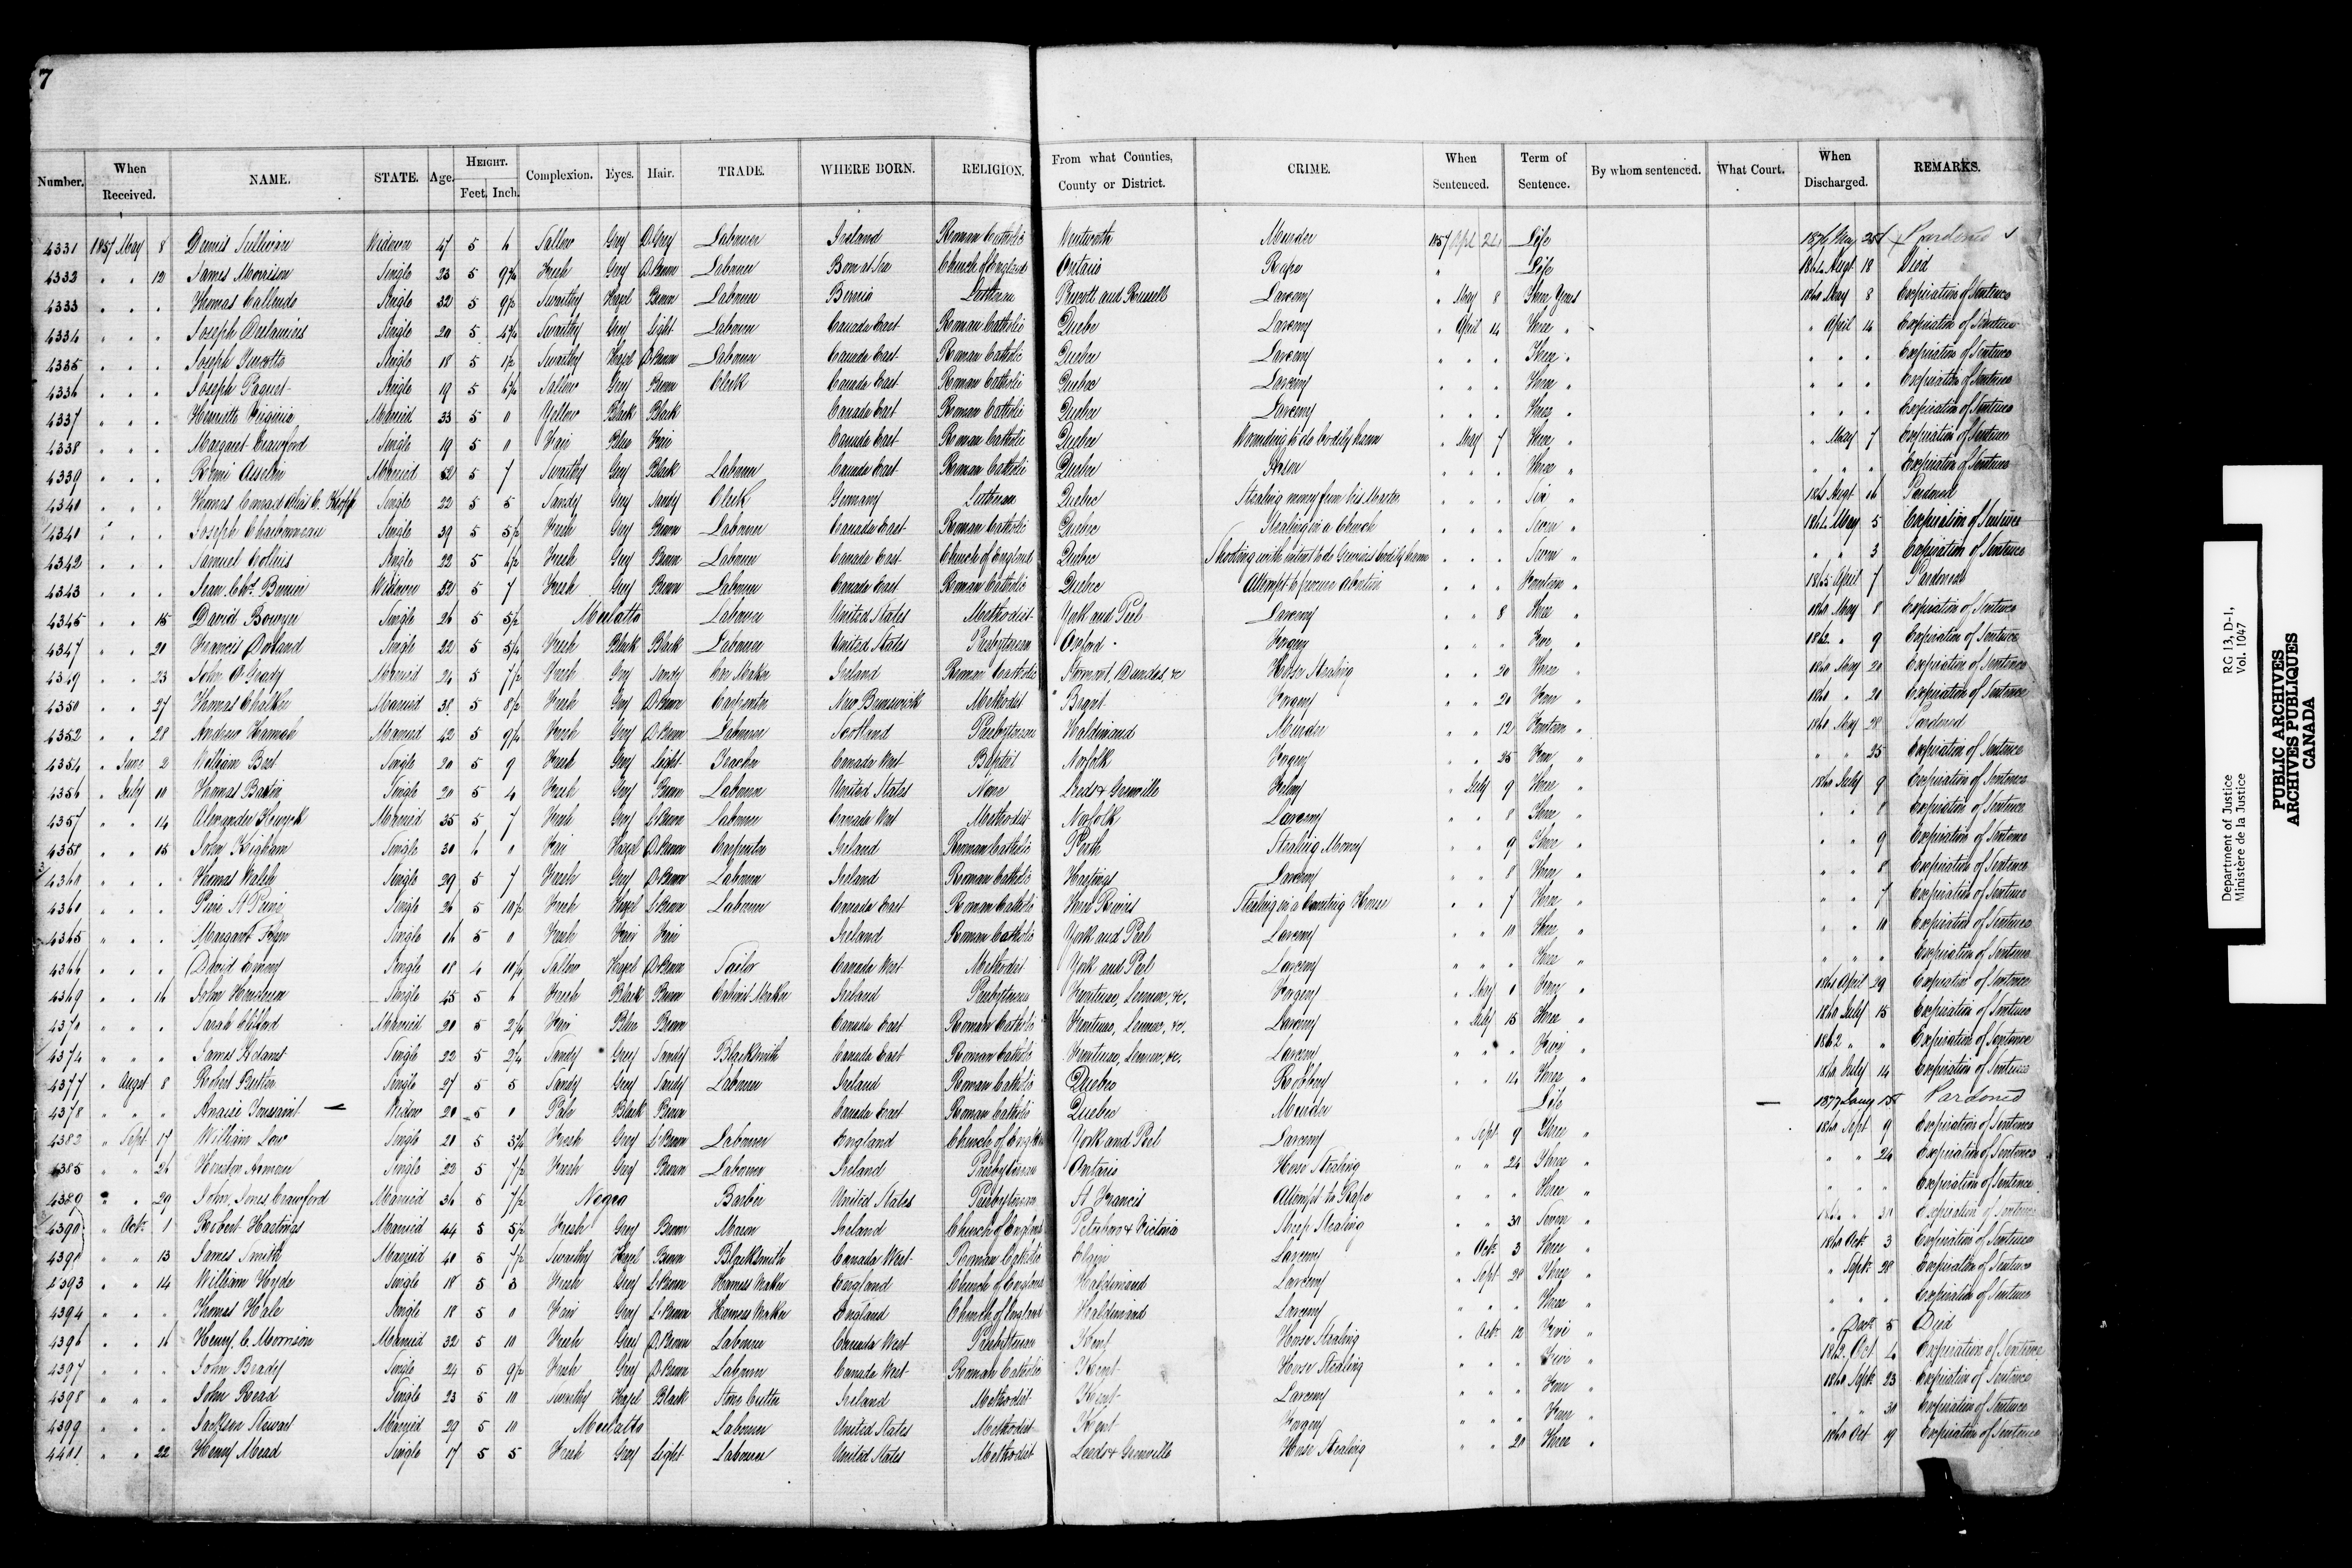 7
Number. When Received. NAME. STATE. Age. HEIGHT. Feet. Inch. Complexion. Eyes. Hair. TRADE. WHERE BORN. RELIGION. From what Counties, County or District. CRIME. When Sentenced. Term of Sentence. By whom sentenced. What Court. When Discharged. REMARKS.
4331 1857 May 8 Dennis Sullivan Widower 47 5 6 Sallow Grey D. Grey Labourer Ireland Roman Catholic Wentworth Murder 1857 Apl 24 Life 1876 25 Pardoned
4332 " " 12 James Morrison Single 23 5 9¾ Fresh Grey D. Brown Labourer Born at Sea Church of England Ontario Rape " Life 1864 Augt 18 Died
4333 " " " Thomas Single 32 5 9½ Swarthy Hazel Brown Labourer Lutheran Prescott and Russell Larceny " May 8 Three Years 1860 May 8 Expiration of Sentence
4334 " " " Joseph Single 20 5 4¾ Swarthy Grey Light Labourer Canada East Roman Catholic Quebec Larceny " April 14 Three " " April 14 Expiration of Sentence
4335 " " " Joseph Single 18 5 1½ Swarthy Hazel D. Brown Labourer Canada East Roman Catholic Quebec Larceny " " " Three " " " " Expiration of Sentence
4336 " " " Joseph Paquet Single 19 5 6¾ Sallow Grey Brown Clerk Canada East Roman Catholic Quebec Larceny " " " Three " " " " Expiration of Sentence
4337 " " " Henriette Married 33 5 0 Yellow Black Black Canada East Roman Catholic Quebec Larceny " " " Three " " " " Expiration of Sentence
4338 " " " Margaret Crawford Single 19 5 0 Fair Blue Fair Canada East Roman Catholic Quebec Wounding to do bodily harm " May 7 Three " " May 7 Expiration of Sentence
4339 " " " Remi Asselin Married 62 5 7 Swarthy Grey Black Labourer Canada East Roman Catholic Quebec Arson " " " Three " " " " Expiration of Sentence
4340 " " " Thomas Conrad alias C. Single 22 5 5 Sandy Grey Sandy Clerk Germany Lutheran Quebec Stealing money from his Master " " " Six " Augt 16 Pardoned
4341 " " " Joseph Charbonneau Single 39 5 5½ Fresh Grey Brown Labourer Canada East Roman Catholic Quebec Stealing in a Church " " " Seven " 1864 May 5 Expiration of Sentence
4342 " " " Samuel Collins Single 22 5 6½ Fresh Grey Brown Labourer Canada East Church of England Quebec Shooting with intent to do Grievous bodily harm " " " Seven " " " 3 Expiration of Sentence
4343 " " " Jean Bte. Widower 52 5 7 Fresh Grey Brown Labourer Canada East Roman Catholic Quebec Attempt to procure abortion " " " Fourteen " 1865 April 7 Pardoned
4345 " " 15 David Bowyer Single 26 5 5½ Mulatto Labourer United States Methodist York and Peel Larceny " " 8 Three " 1860 May 8 Expiration of Sentence
4347 " " 21 Francis Dorland Single 22 5 5¼ Fresh Black Black Labourer United States Presbyterian Oxford Forgery " " " " 1862 " 9 Expiration of Sentence
4349 " " 23 John O'Grady Married 24 5 7½ Fresh Grey Sandy Maker Ireland Roman Catholic Stormont, Dundas, &c Horse Stealing " " 20 Three " 1860 May 20 Expiration of Sentence
4350 " " 27 Thomas Chalker Married 38 5 8½ Fresh Grey D. Brown Carpenter New Brunswick Methodist Brant Forgery " " 20 " " 20 Expiration of Sentence
4352 " " 28 Andrew Married 42 5 9¼ Fresh Grey D. Brown Labourer Scotland Presbyterian Haldimand Murder " " 12 Fourteen " May 28 Pardoned
4354 " June 2 William Best Single 20 5 9 Fresh Grey Light Teacher Canada West Baptist Norfolk Forgery " " 25 " " " 25 Expiration of Sentence
4356 " July 10 Thomas Single 20 5 4 Fresh Grey Brown Labourer United States None Leeds & Grenville Felony " July 9 Three " 1860 July 9 Expiration of Sentence
4357 " " 14 Alexander Married 35 5 7 Fresh Grey D. Brown Labourer Canada West Methodist Norfolk Larceny " " 8 Three " " " 8 Expiration of Sentence
4358 " " 15 John Single 30 6 0 Fair Hazel D. Brown Carpenter Ireland Roman Catholic Perth Stealing Money " " 9 Three " " " 9 Expiration of Sentence
4360 " " " Thomas Walsh Single 29 5 7 Fresh Grey D. Brown Labourer Ireland Roman Catholic Hastings Larceny " " 8 Three " " " 8 Expiration of Sentence
" " " Single 26 5 10½ Fresh Hazel D. Brown Labourer Canada East Roman Catholic Three Rivers Stealing in a Counting House " " 7 Three " " " 7 Expiration of Sentence
4365 " " " Margaret Single 16 5 0 Fresh Fair Fair Ireland Roman Catholic York and Peel Larceny " " 10 Three " " " 10 Expiration of Sentence
4366 " " " David Single 18 4 10¼ Sallow Hazel D. Brown Tailor Canada West Methodist York and Peel Larceny " " " Three " " " " Expiration of Sentence
4369 " " 16 John Henderson Single 45 5 6 Fresh Black Brown Cabinet Maker Ireland Presbyterian Frontenac, Lennox, &c. Forgery " May 1 " 1861 April 29 Expiration of Sentence
4370 " " " Sarah Clifford Married 20 5 2¼ Fair Blue Brown Canada East Roman Catholic Frontenac, Lennox, &c. Larceny " July 15 Three " 1860 July 15 Expiration of Sentence
4374 " " " James Single 22 5 2¼ Sandy Grey Sandy Blacksmith Canada East Roman Catholic Frontenac, Lennox, &c. Larceny " " " Five " 1862 " " Expiration of Sentence
4377 " Augst 8 Robert Single 27 5 5 Sandy Grey Sandy Labourer Ireland Roman Catholic Quebec Robbery " " 14 Three " 1860 July 14 Expiration of Sentence
4378 " " " Anaise Toussaint Widow 20 5 0 Pale Black Brown Canada East Roman Catholic Quebec Murder Life 1877 Pardoned
4382 " Sept 17 William Low Single 21 5 5¼ Fresh Grey D. Brown Labourer England Church of England York and Peel Larceny " Sept 9 Three " 1860 Sept 9 Expiration of Sentence
4385 " " 26 Single 22 5 7½ Fresh Grey Brown Labourer Ireland Presbyterian Ontario Horse Stealing " " 24 Three " " " 24 Expiration of Sentence
4389 " " 29 John Jones Crawford Married 36 5 7½ Negro Barber United States Presbyterian St Francis Attempt to Rape " " " Three " " " " Expiration of Sentence
4390 " Oct. 1 Robert Hastings Married 44 5 5½ Fresh Grey Brown Mason Ireland Church of England Peterboro & Victoria Sheep Stealing " " 30 Seven " " 30 Expiration of Sentence
4391 " " 13 James Smith Married 40 5 7½ Swarthy Hazel Brown Blacksmith Canada West Roman Catholic Elgin Larceny " Oct. 3 Three " 1860 Oct. 3 Expiration of Sentence
4393 " " 14 William Hyde Single 18 5 3 Fresh Grey D. Brown Harness Maker England Church of England Haldimand Larceny " Sept 28 Three " " Sept. 28 Expiration of Sentence
4394 " " " Thomas Hale Single 18 5 0 Fair Grey L. Brown Harness Maker England Church of England Haldimand Larceny " " " Three " " " " Expiration of Sentence
4396 " " 16 Henry C. Morrison Married 32 5 10 Fresh Grey D. Brown Labourer Canada West Presbyterian Kent Horse Stealing " Oct. 12 Five " " 5 Died
4397 " " " John Brady Single 24 5 9½ Fresh Grey D. Brown Labourer Canada West Roman Catholic Kent Horse Stealing " " " Five " 1862 Oct Expiration of Sentence
4398 " " " John Read Single 23 5 10 Swarthy Hazel Black Stone Cutter Ireland Methodist Kent Larceny " " " " 1860 Sept. 23 Expiration of Sentence
4399 " " " Jackson Stewart Married 29 5 10 Mulatto Labourer United States Methodist Kent Forgery " " " " " " 30 Expiration of Sentence
4401 " " 22 Henry Mead Single 17 5 5 Fresh Grey Light Labourer United States Methodist Leeds & Grenville Horse Stealing " " 20 Three " 1860 Oct 19 Expiration of Sentence
Department of Justice RG 13, D-1,
Ministère de la Justice Vol. 1047
PUBLIC ARCHIVES
ARCHIVES PUBLIQUES
CANADA